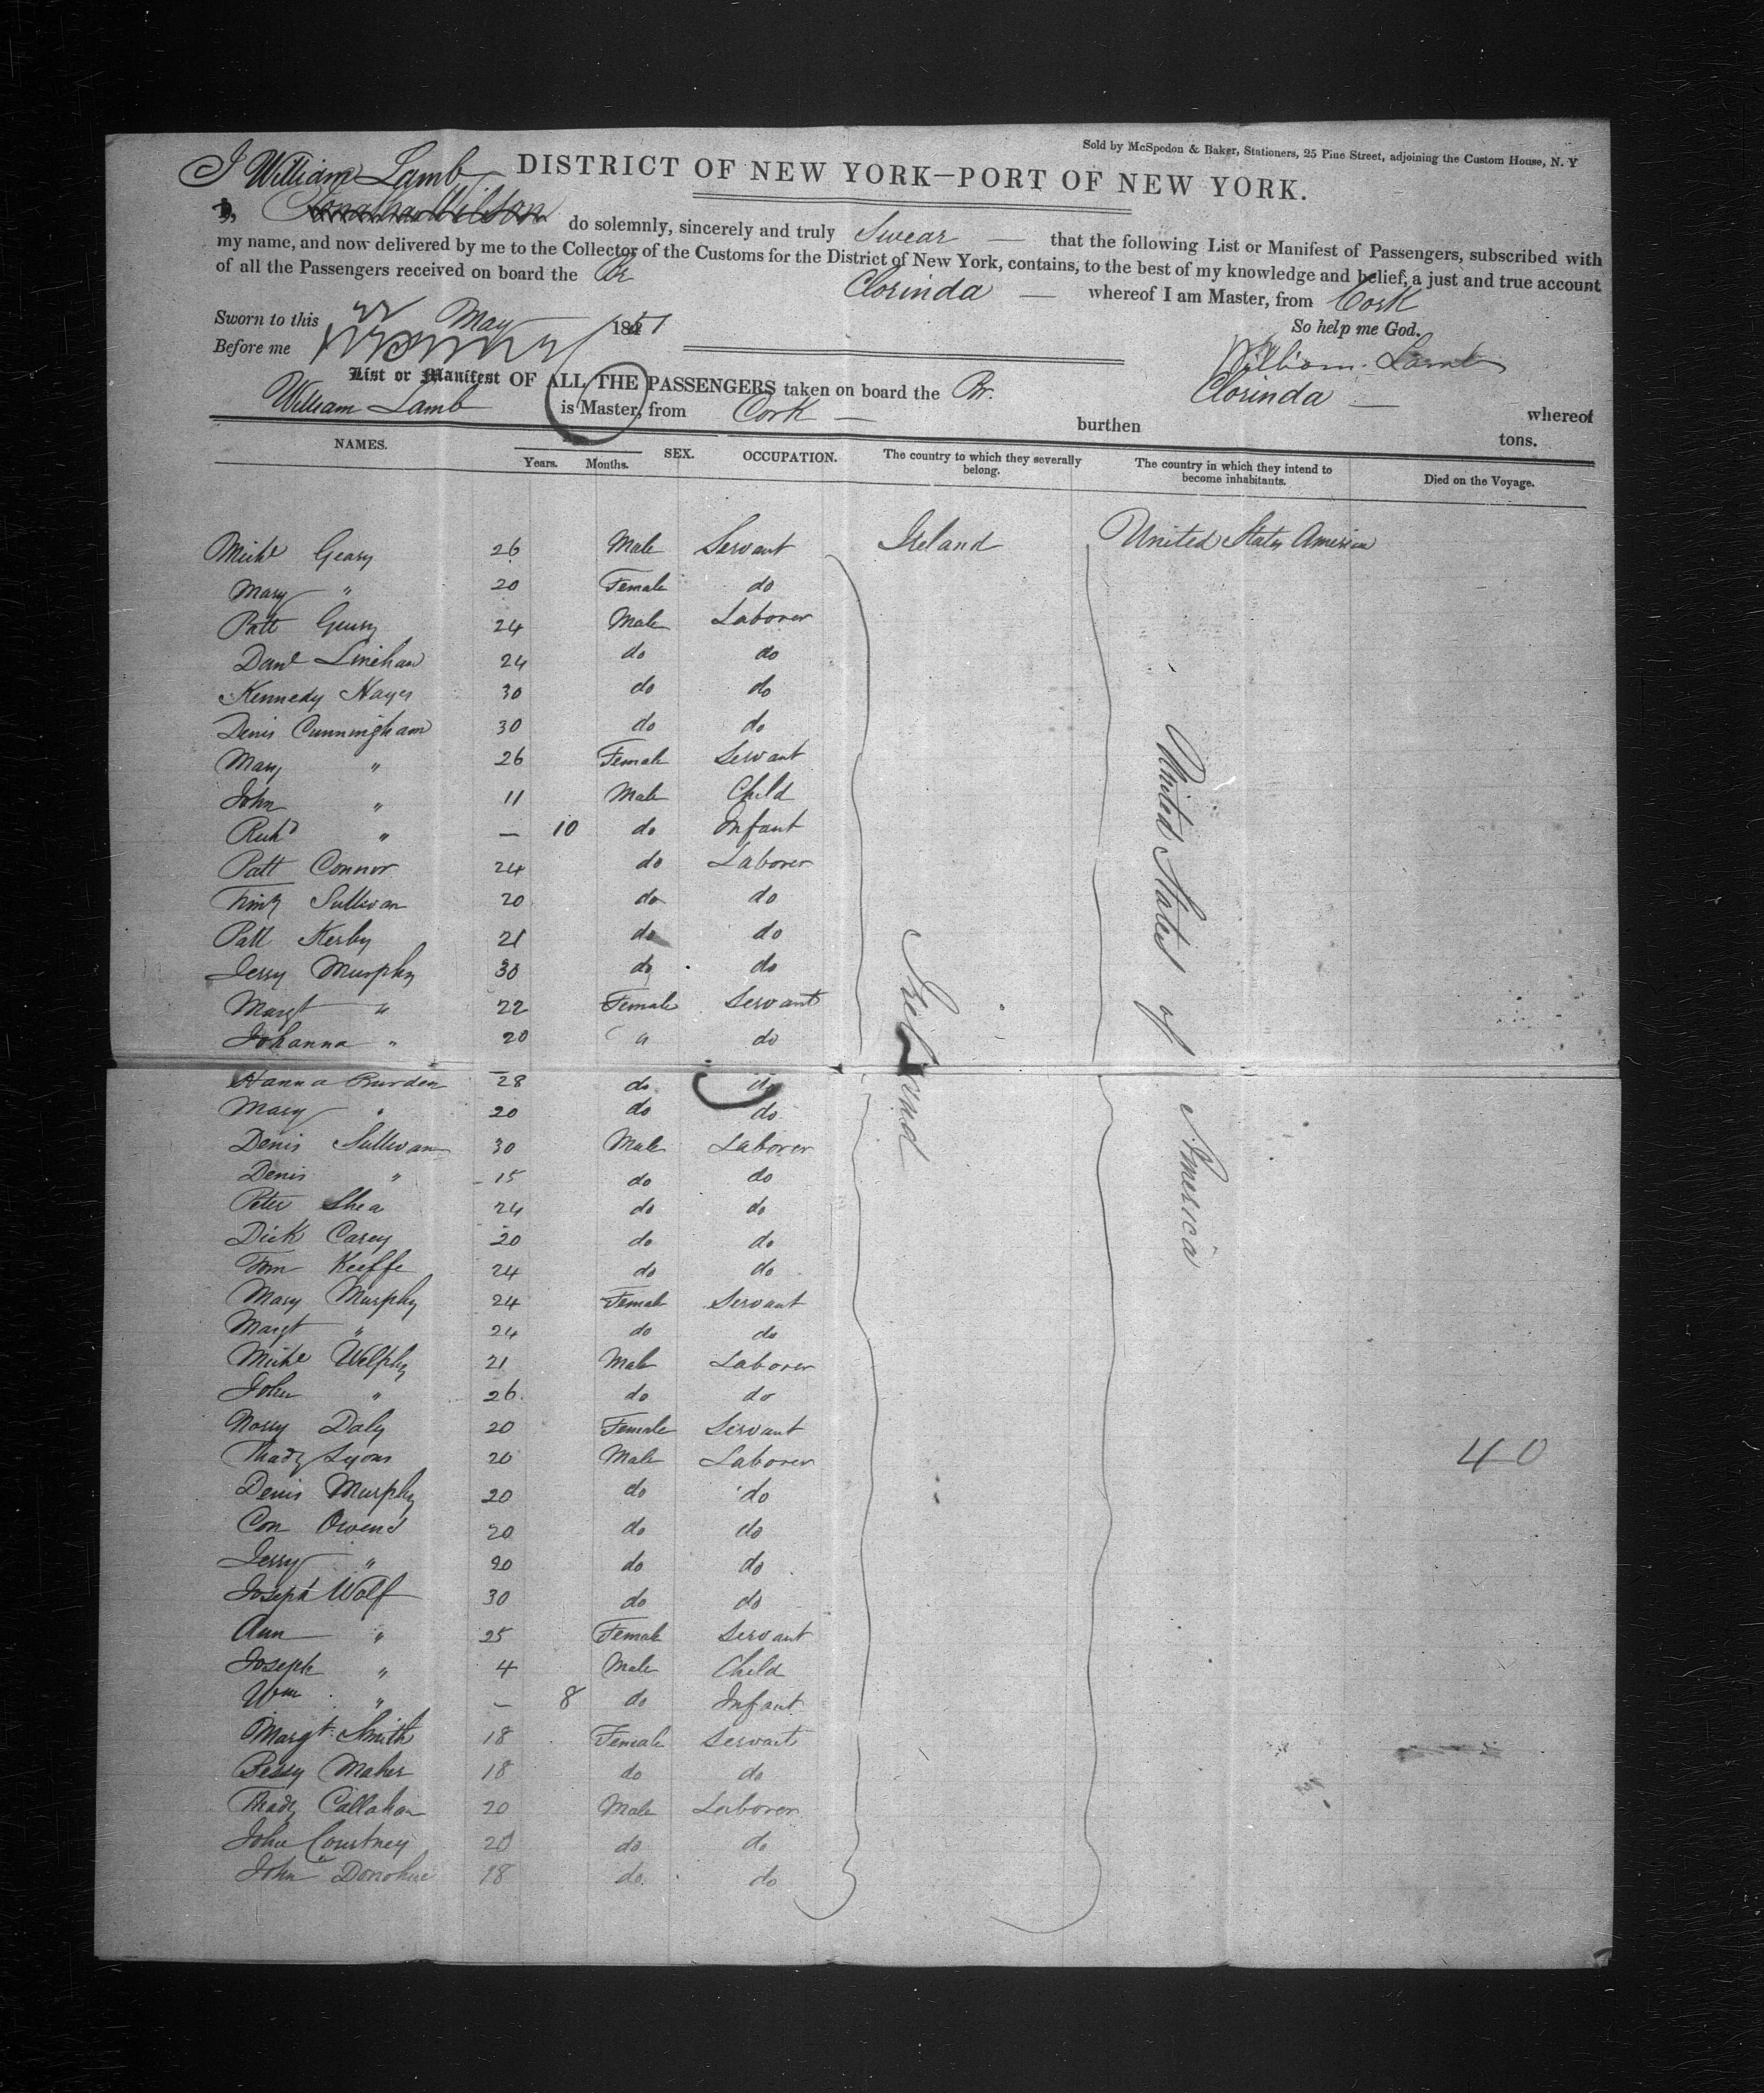 Sold by McSpedon & Baker, Stationers, 25 Pine Street, adjoining the Custom House, N. Y
I William Lamb
DISTRICT OF NEW YORK—PORT OF NEW YORK.
I, Wilson do solemnly, sincerely and truly Swear — that the following List or Manifest of Passengers, subscribed with
my name, and now delivered by me to the Collector of the Customs for the District of New York, contains, to the best of my knowledge and belief, a just and true account
of all the Passengers received on board the Br Clorinda — whereof I am Master, from Cork
Sworn to this 22 May 1851 So help me God.
Before me William Lamb
List or Manifest OF ALL THE PASSENGERS taken on board the Br. Clorinda — whereof
William Lamb is Master, from Cork — burthen tons.
NAMES. Years. Months. SEX. OCCUPATION. The country to which they severally belong. The country in which they intend to become inhabitants. Died on the Voyage.
Michl Geary 26 Male Servant Ireland United States America
Mary " 20 Female do
Patt Geary 24 Male Laborer
Danl Linehan 24 do do
Kennedy Hayes 30 do do
Denis Cunningham 30 do do
Mary " 26 Female Servant
John " 11 Male Child
Richd " — 10 do Infant
Patt Connor 24 do Laborer
Timy Sullivan 20 do do
Patt Kerby 21 do do
Jerry Murphy 30 do do
Margt " 22 Female Servant
Johanna " 20 " do
Hanna Burden 28 do do
Mary " 20 do do
Denis Sullivan 30 Male Laborer
Denis " 15 do do
Peter Shea 24 do do
Dick Carey 20 do do
Tom Keeffe 24 do do
Mary Murphy 24 Female Servant
Margt " 24 do do
Michl Welphy 21 Male Laborer
John " 26 do do
Norry Daly 20 Female Servant
Thady Lyons 20 Male Laborer
40
Denis Murphy 20 do do
Con Owens 20 do do
Jerry " 20 do do
Joseph Wolf 30 do do
Ann " 25 Female Servant
Joseph " 4 Male Child
Wm " — 8 do Infant
Margt Smith 18 Female Servant
Bessy Maher 18 do do
Thady Callahan 20 Male Laborer
John Courtney 20 do do
John Donohue 18 do do
Ireland
United States of America